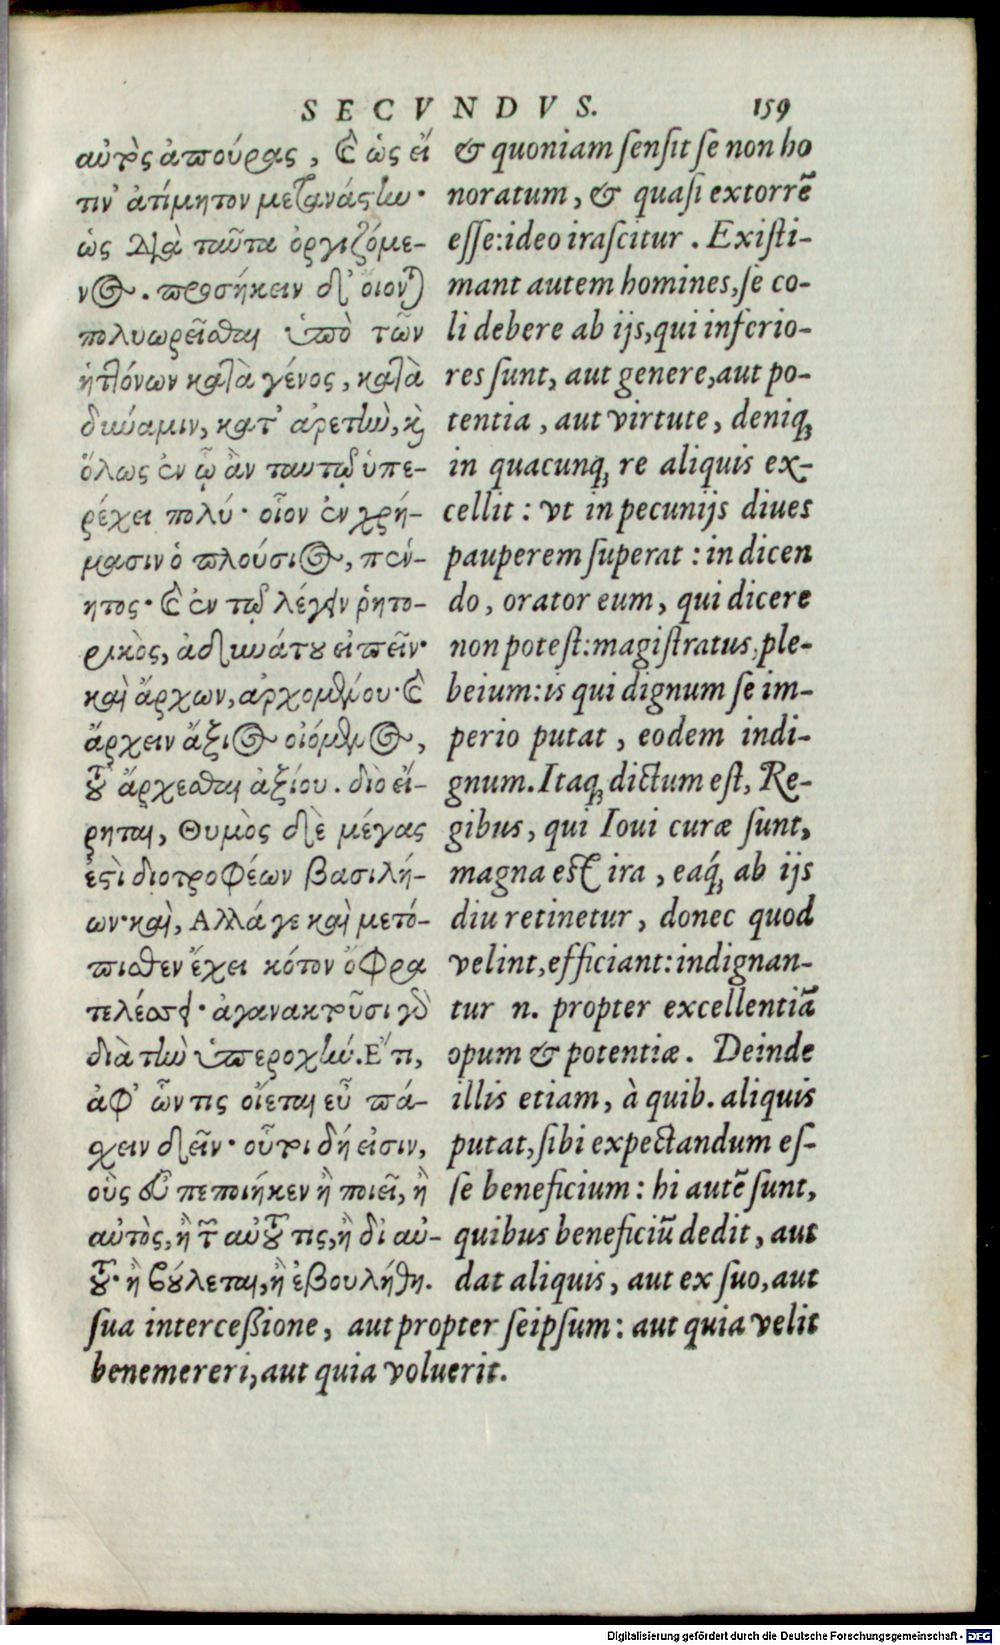 SECVNDVS. 159
αὐτὸς ἀπούρας, καὶ ὡς εἴ
τιν' ἀτίμητον μετανάστην·
ὡς διὰ ταῦτα ὀργιζόμε-
νος. προσήκειν δ' οἴονται
πολυωρεῖσθαι ὑπὸ τῶν
ἡττόνων κατὰ γένος, κατὰ
δύναμιν, κατ' ἀρετὴν, καὶ
ὅλως ἐν ᾧ ἂν ταυτῷ ὑπε-
ρέχει πολύ· οἷον ἐν χρή-
μασιν ὁ πλούσιος, πέν-
ητος· καὶ ἐν τῷ λέγειν ῥητο-
ρικὸς, ἀδυνάτου εἰπεῖν·
καὶ ἄρχων, ἀρχομένου· καὶ
ἄρχειν ἄξιος οἰόμενος,
τοῦ ἄρχεσθαι ἀξίου. διὸ εἴ-
ρηται, Θυμὸς δὲ μέγας
ἐστὶ διοτροφέων βασιλή-
ων· καὶ, Αλλά γε καὶ μετό-
πισθεν ἔχει κότον ὄφρα
τελέσσῃ· ἀγανακτοῦσι γὰρ
διὰ τὴν ὑπεροχήν. Ἔτι,
ἀφ' ὧν τις οἴεται εὖ πά-
χειν δεῖν· οὗτοι δή εἰσιν,
οὓς εὖ πεποιήκεν ἢ ποιεῖ, ἢ
αὐτὸς, ἢ τῶν αὐτοῦ τις, ἢ δι' αὐ-
τοῦ· ἢ βούλεται, ἢ ἐβουλήθη.
& quoniam sensit se non ho
noratum, & quasi extorrē
esse: ideo irascitur. Existi-
mant autem homines, se co-
li debere ab ijs, qui inferio-
res sunt, aut genere, aut po-
tentia, aut virtute, deniq;
in quacunq; re aliquis ex-
cellit: vt in pecunijs diues
pauperem superat: in dicen
do, orator eum, qui dicere
non potest: magistratus, ple-
beium: is qui dignum se im-
perio putat, eodem indi-
gnum. Itaq; dictum est, Re-
gibus, qui Ioui curæ sunt,
magna est ira, eaq́; ab ijs
diu retinetur, donec quod
velint, efficiant: indignan-
tur n. propter excellentiā
opum & potentiæ. Deinde
illis etiam, à quib. aliquis
putat, sibi expectandum es-
se beneficium: hi autē sunt,
quibus beneficiū dedit, aut
dat aliquis, aut ex suo, aut
sua intercessione, aut propter seipsum: aut quia velit
benemereri, aut quia voluerit.
Digitalisierung gefördert durch die Deutsche Forschungsgemeinschaft - DFG